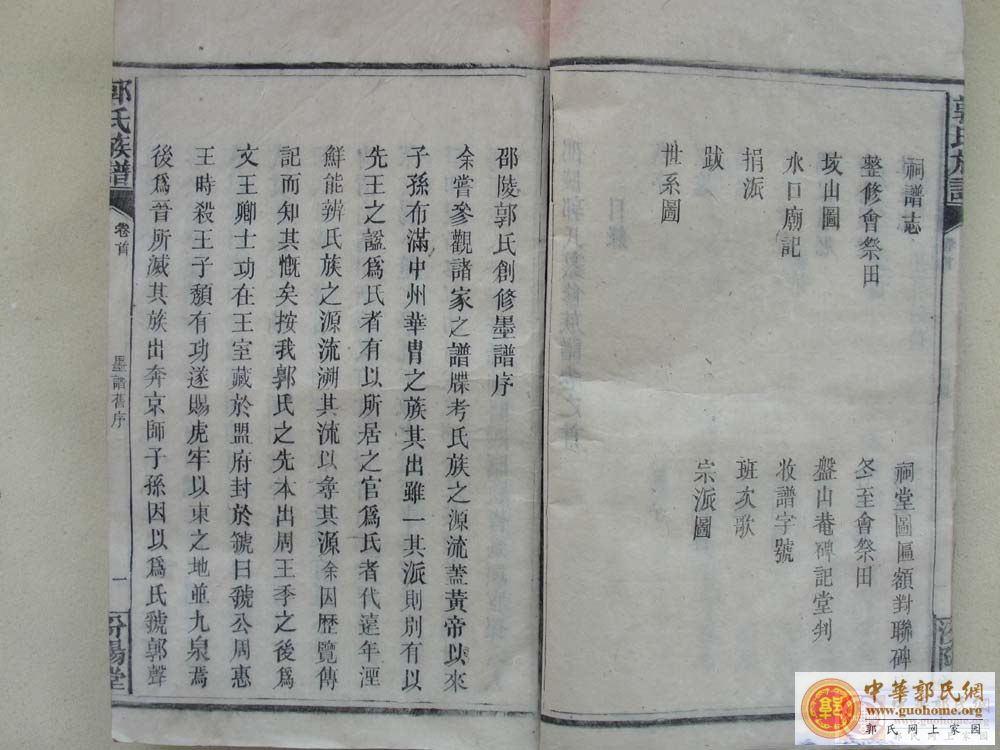 祠譜志
祠堂圖匾額對聯碑
整修會祭田
冬至會祭田
坟山圖
盤山菴碑記堂判
水口廟記
收譜字號
捐派
班次歌
跋
宗派圖
世系圖
邵陵郭氏創修墨譜序
余嘗參觀諸家之譜牒考氏族之源流蓋黃帝以來
子孫布滿中州華胄之族其出雖一其派則別有以
先王之諡爲氏者有以所居之官爲氏者代遠年湮
鮮能辨氏族之源流溯其流以尋其源余因歷覽傳
記而知其慨矣按我郭氏之先本出周王季之後爲
文王卿士功在王室藏於盟府封於虢曰虢公周惠
王時殺王子頹有功遂賜虎牢以東之地並九泉焉
後爲晉所滅其族出奔京師子孫因以爲氏虢郭聲
郭氏族譜
卷首
墨譜舊序
一
汾陽堂
郭氏族譜
中華郭氏網
www.guohome.org
郭氏網上家園